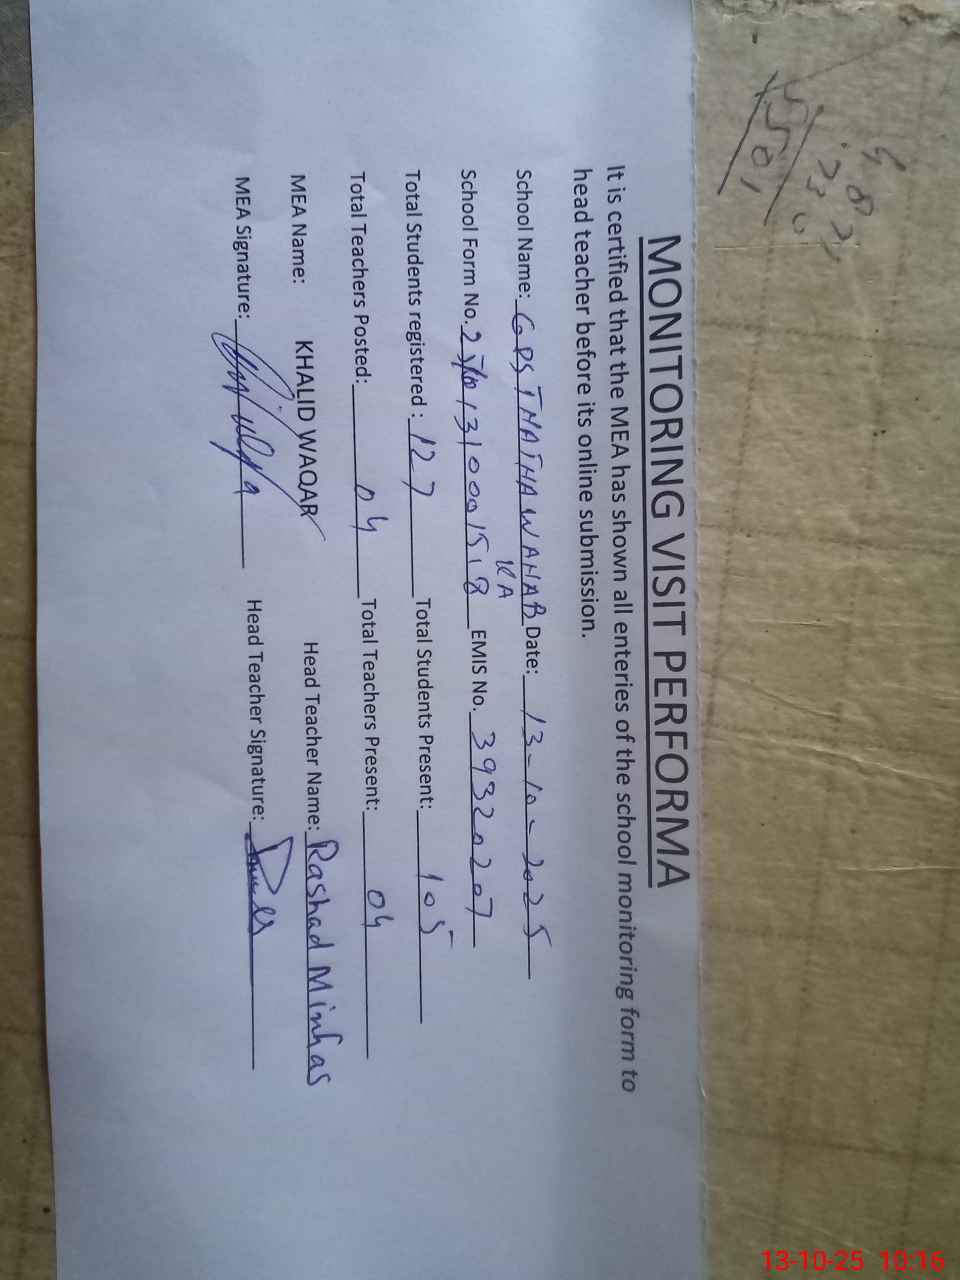 MONITORING VISIT PERFORMA
It is certified that the MEA has shown all enteries of the school monitoring form to
head teacher before its online submission.
School Name: GPS THATHA WAHAB Date: 13-10-2025
KA
School Form No. 1310001518 EMIS No. 39320207
Total Students registered : 127 Total Students Present: 105
Total Teachers Posted: 04 Total Teachers Present: 04
MEA Name: KHALID WAQAR Head Teacher Name: Rashad Minhas
MEA Signature: Head Teacher Signature:
13-10-25 10:16